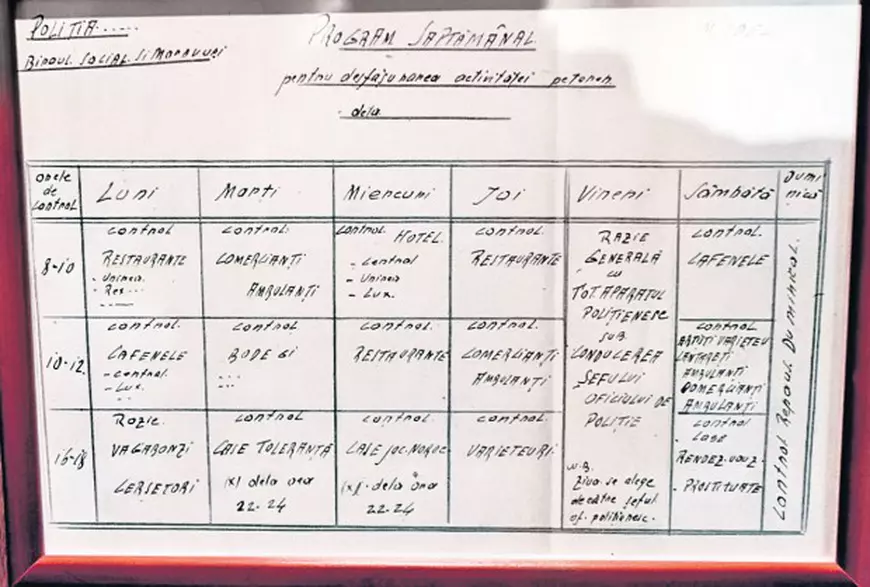 POLIȚIA......
Biroul Social Si Moravuri
PROGRAM SAPTĂMÂNAL
pentru desfășurarea activităței
dela
Orele de Control
Luni
Marți
Miercuri
Joi
Vineri
Sâmbătă
Duminică
8-10
Control
RESTAURANTE
- Unirea
- Res...
Control
COMERCIANȚI
AMBULANȚI
Control HOTEL
- Central
- Unirea
- Lux.
Control
RESTAURANTE
RAZIE
GENERALĂ
cu
TOT APARATUL
POLIȚIENESC
SUB
CONDUCEREA
ȘEFULUI
OFICIULUI DE
POLIȚIE
N.B.
Ziua se alege
decătre șeful
of. polițienesc.
Control
CAFENELE
Control Repaus Duminical
10-12
Control
CAFENELE
- Central.
- Lux.
Control
BODEGI
...
Control
RESTAURANTE
Control
COMERCIANȚI
AMBULANȚI
Control
ARTIȘTI VARIETEU
AMBULANȚI
COMERCIANȚI
AMBULANȚI
16-18
Razie
VAGABONZI
CERȘETORI
Control
CASE TOLERANȚĂ
(x) dela ora
22-24
Control
CASE JOC NOROC
(x) dela ora
22-24
Control
VARIETEURI
Control
Case
RENDEZ-VOUZ
PROSTITUATE